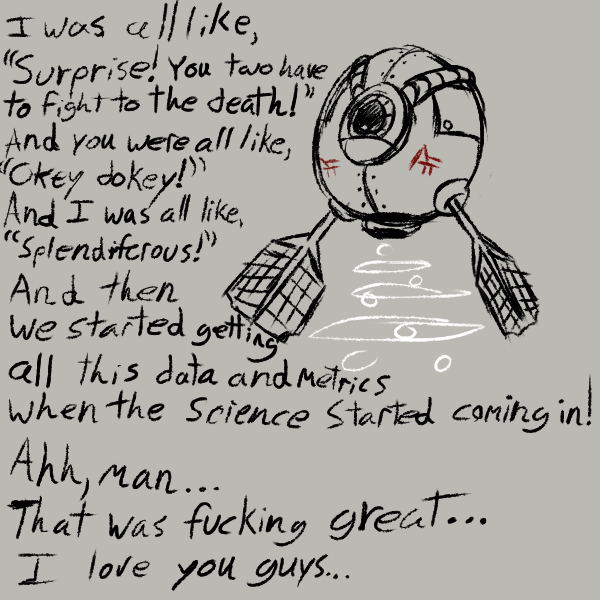 I was all like,
"Surprise! You two have
to fight to the death!"
And you were all like,
"Okey dokey!"
And I was all like,
"Splendiferous!"
And then
we started getting
all this data and Metrics
when the Science Started coming in!
Ahh, man...
That was fucking great...
I love you guys...